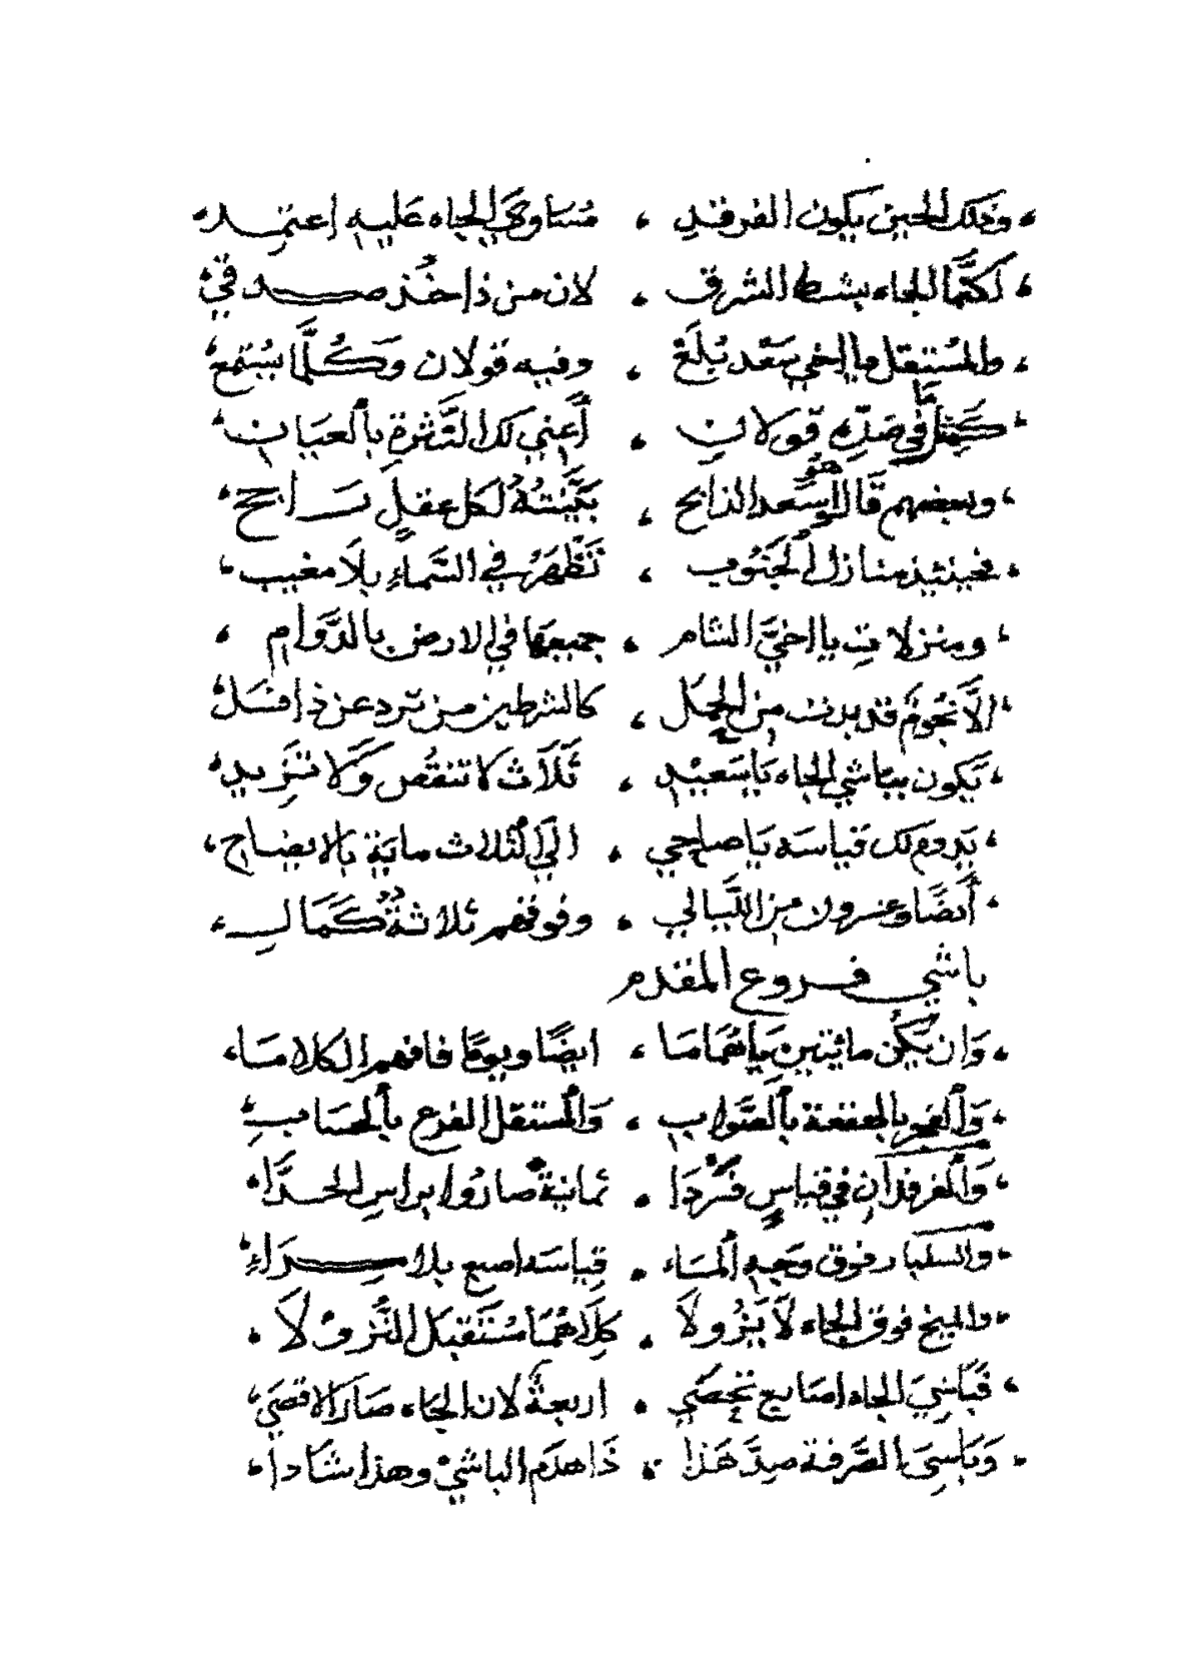 وذلك الحين يكون الفرقد ، مساوي الجاه عليه اعتمد
لكنما الجاه بشط الشرق ، لان من ذا خذ صد في
والمستقل يا اخي سعد بلع ، وفيه قولان وكلما يستمع
كمثل ما في ضده قولان ، أعني لك النثرة بالعيان
وبعضهم قال هو سعد الذابح ، بينته لكل عقل راجح
فحينئذ منازل الجنوب ، تظهر في السماء بلا مغيب
ومنزلات يا اخي الشام ، جميعها في الارض بالدوام
الا نجوم قد بدت من الحمل ، كالشرطين من ترد عن ذا فسل
يكون بباشي الجاه يا سعيد ، ثلاث لا تنقص ولا تزيد
يدوم لك قياسه يا صاحبي ، الى الثلاث ماية بالايضاح
أيضا وعشرون من الليالي ، وفوقهم ثلاثة كمال
باشي فروع المقدم
وان يكن مائتين يا هماما ، ايضا ويوما فافهم الكلاما
والفجر بالجعفعة بالصواب ، والمستقل الفرع بالحساب
والفرقدان في قياس فردا ، ثمانية صاروا براس الحدا
والسلبار فوق وجه الماء ، قياسه اصبع بلا مراء
والميخ فوق الجاه لا يزولا ، كلاهما مستقبل النزولا
فباشي الجاه اصابع تحصي ، اربعة لان الجاه صار الاقصى
وباشي الصرفة صد هذا ، ذا هدم الباشي وهذا شادا